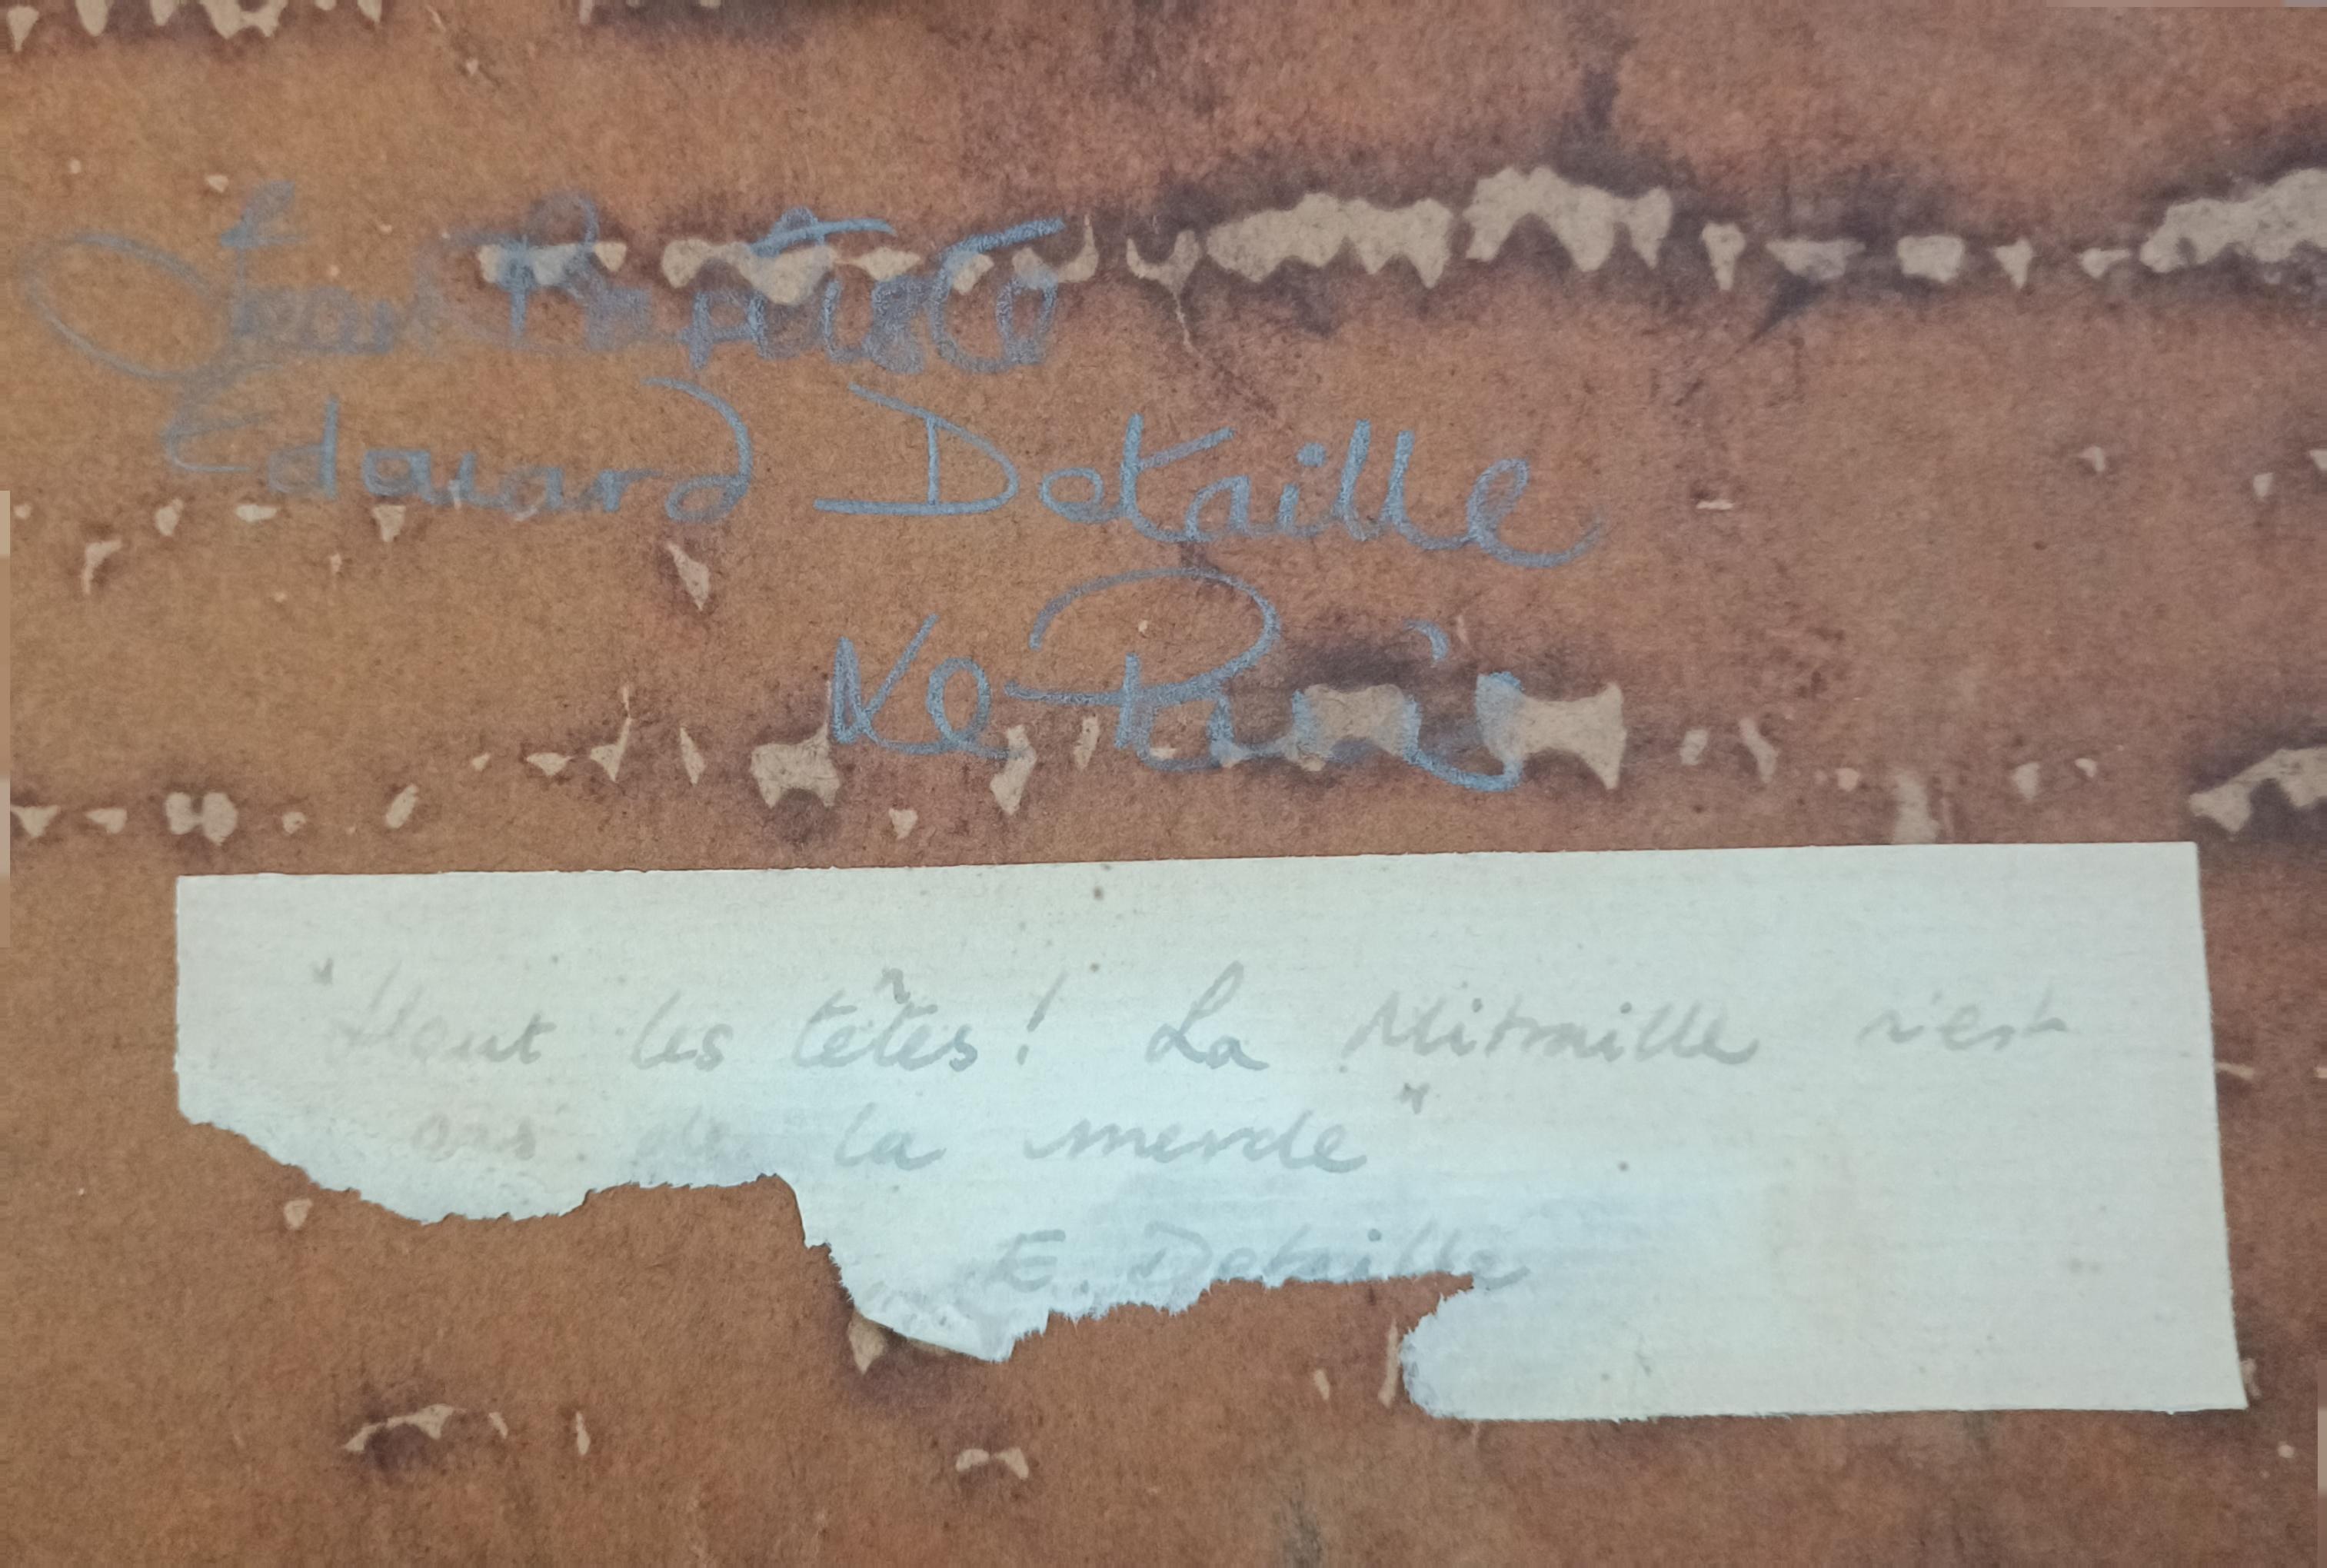 Jean Baptiste
Edouard Detaille
Né Paris
"Haut les têtes! La Mitraille n'est
pas de la merde"
E. Detaille